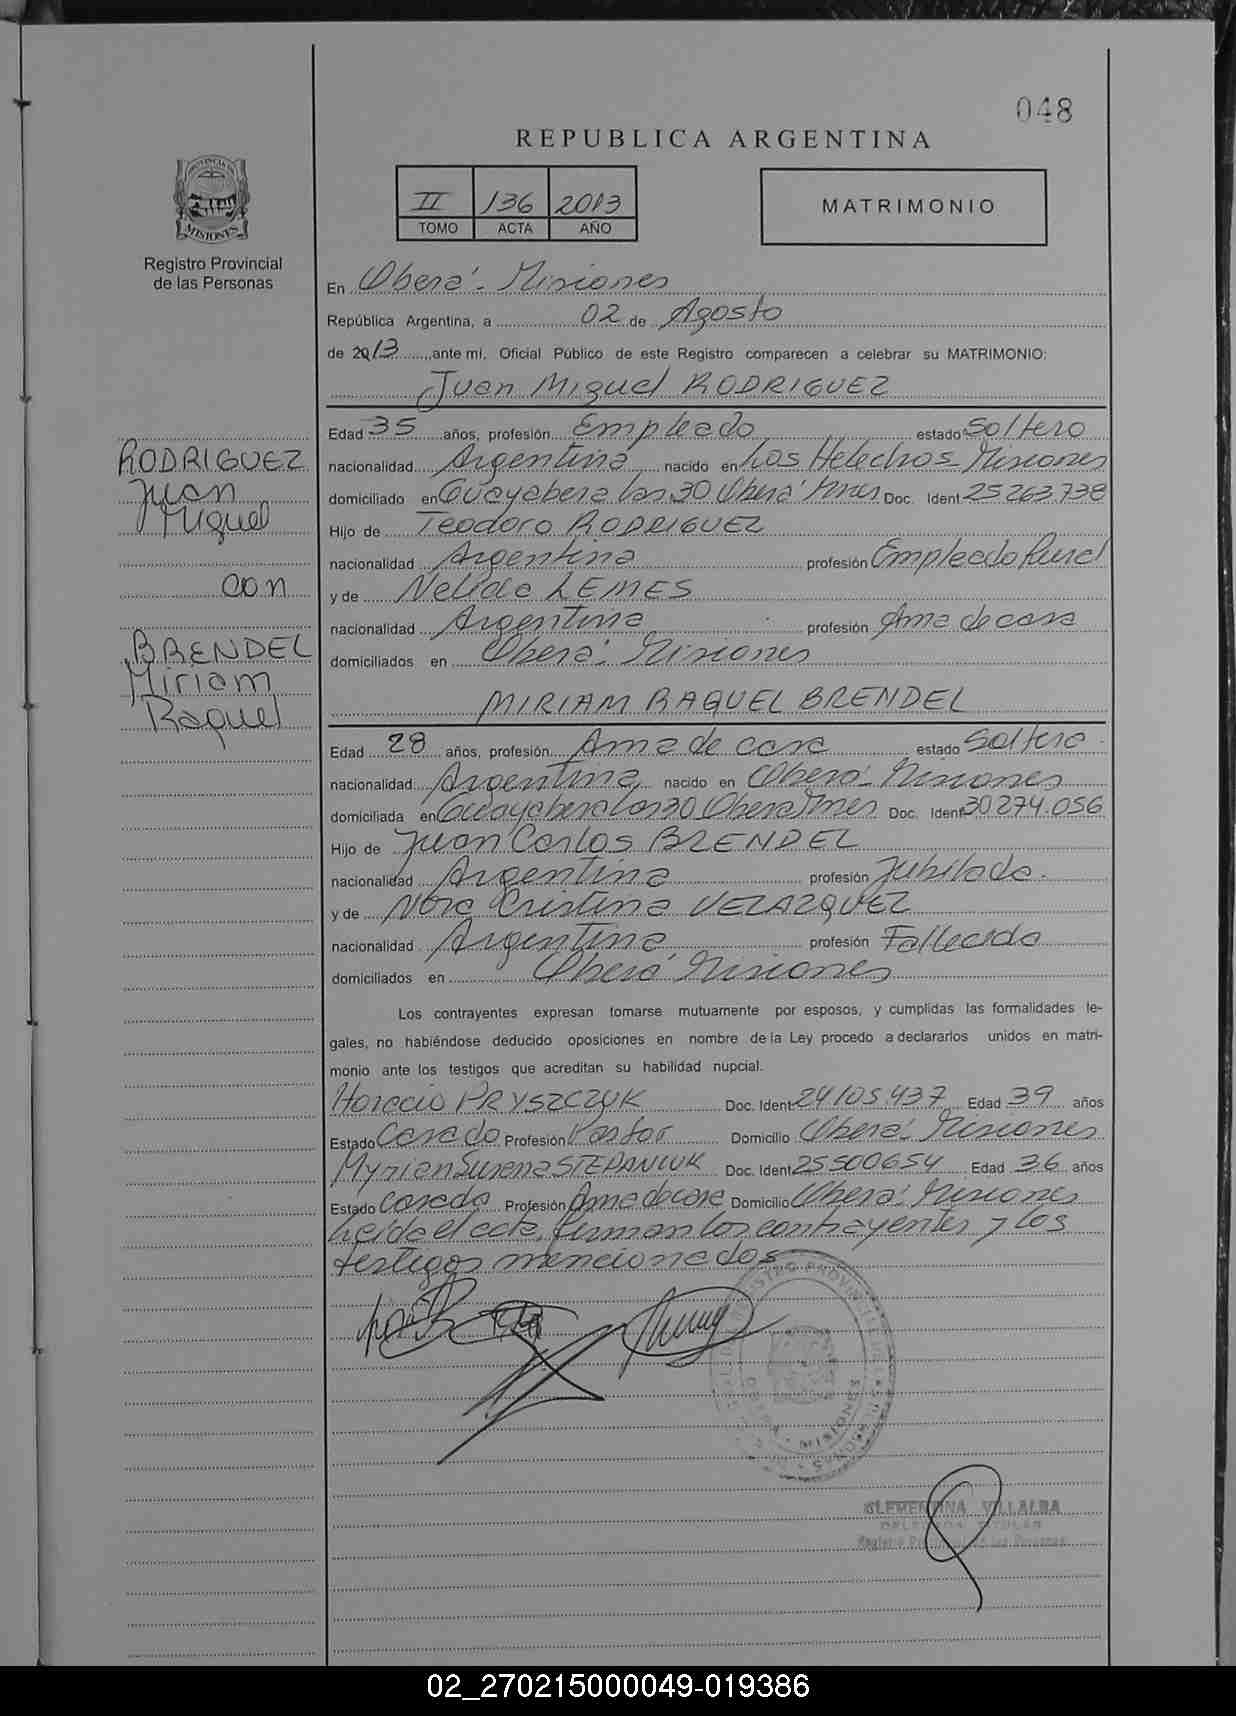 048
REPUBLICA ARGENTINA
II 136 2013
TOMO ACTA AÑO
MATRIMONIO
PROVINCIA DE
MISIONES
Registro Provincial
de las Personas
En Oberá - Misiones
República Argentina, a 02 de Agosto
de 2013 ante mí, Oficial Público de este Registro comparecen a celebrar su MATRIMONIO:
Juan Miguel RODRIGUEZ
Edad 35 años, profesión Empleado estado Soltero
nacionalidad Argentina nacido en Los Helechos - Misiones
domiciliado en Guayabera Las 30 Oberá Mnes Doc. Ident 25 263.738
Hijo de Teodoro RODRIGUEZ
nacionalidad Argentina profesión Empleado Rural
y de Nelida LEMES
nacionalidad Argentina profesión Ama de casa
domiciliados en Oberá. Misiones
MIRIAM RAQUEL BRENDEL
RODRIGUEZ
Juan
Miguel
con
BRENDEL
Miriam
Raquel
Edad 28 años, profesión Ama de casa estado Soltera
nacionalidad Argentina nacido en Oberá - Misiones
domiciliada en Guayabera Las 30 Oberá Mnes Doc. Ident 30 274.056
Hijo de Juan Carlos BRENDEL
nacionalidad Argentina profesión Jubilado.
y de Nora Cristina VELAZQUEZ
nacionalidad Argentina profesión Fallecida
domiciliados en Oberá Misiones
Los contrayentes expresan tomarse mutuamente por esposos, y cumplidas las formalidades le-
gales, no habiéndose deducido oposiciones en nombre de la Ley procedo a declararlos unidos en matri-
monio ante los testigos que acreditan su habilidad nupcial.
Horacio PRYSZCZUK Doc. Ident 24 105.437 Edad 39 años
Estado Casado Profesión Pastor Domicilio Oberá. Misiones
Myrian Susana STEPANIUK Doc. Ident 25500654 Edad 36 años
Estado Casada Profesión Ama de casa Domicilio Oberá. Misiones
Leída el acta, firman los contrayentes y los
testigos mencionados
CLEMENTINA VILLALBA
DELEGADA TITULAR
Registro Provincial de las Personas
02_270215000049-019386